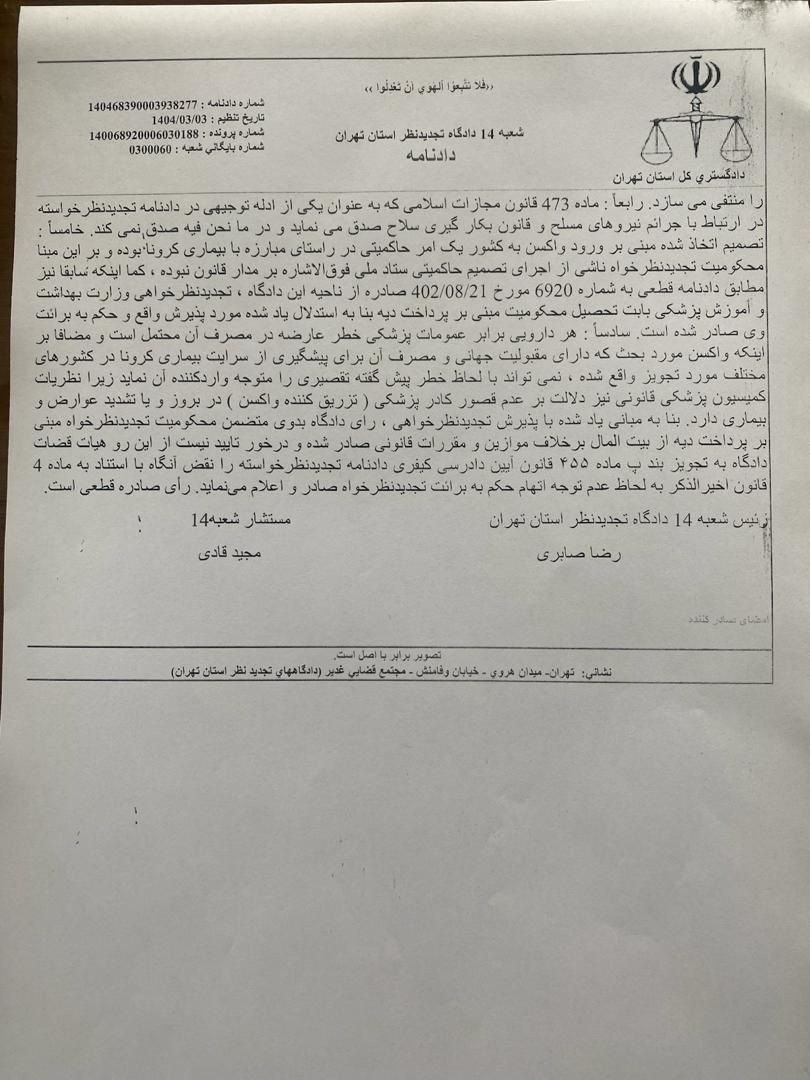 ‹‹فَلا تَتَّبِعوُا اَلهَويٰ اَنْ تَعْدِلُوا ››
شعبه 14 دادگاه تجدیدنظر استان تهران
دادنامه
شماره دادنامه : 140468390003938277
تاریخ تنظیم : 1404/03/03
شماره پرونده : 140068920006030188
شماره بایگاني شعبه : 0300060
دادگستري کل استان تهران
را منتفی می سازد. رابعاً : ماده 473 قانون مجازات اسلامی که به عنوان یکی از ادله توجیهی در دادنامه تجدیدنظرخواسته
در ارتباط با جرائم نیروهای مسلح و قانون بکار گیری سلاح صدق می نماید و در ما نحن فیه صدق نمی کند. خامساً :
تصمیم اتخاذ شده مبنی بر ورود واکسن به کشور یک امر حاکمیتی در راستای مبارزه با بیماری کرونا بوده و بر این مبنا
محکومیت تجدیدنظرخواه ناشی از اجرای تصمیم حاکمیتی ستاد ملی فوق‌الاشاره بر مدار قانون نبوده ، کما اینکه سابقا نیز
مطابق دادنامه قطعی به شماره 6920 مورخ 402/08/21 صادره از ناحیه این دادگاه ، تجدیدنظرخواهی وزارت بهداشت
و آموزش پزشکی بابت تحصیل محکومیت مبنی بر پرداخت دیه بنا به استدلال یاد شده مورد پذیرش واقع و حکم به برائت
وی صادر شده است. سادساً : هر دارویی برابر عمومات پزشکی خطر عارضه در مصرف آن محتمل است و مضافا بر
اینکه واکسن مورد بحث که دارای مقبولیت جهانی و مصرف آن برای پیشگیری از سرایت بیماری کرونا در کشورهای
مختلف مورد تجویز واقع شده ، نمی تواند با لحاظ خطر پیش گفته تقصیری را متوجه واردکننده آن نماید زیرا نظریات
کمیسیون پزشکی قانونی نیز دلالت بر عدم قصور کادر پزشکی ( تزریق کننده واکسن ) در بروز و یا تشدید عوارض و
بیماری دارد. بنا به مبانی یاد شده با پذیرش تجدیدنظرخواهی ، رای دادگاه بدوی متضمن محکومیت تجدیدنظرخواه مبنی
بر پرداخت دیه از بیت المال برخلاف موازین و مقررات قانونی صادر شده و درخور تایید نیست از این رو هیات قضات
دادگاه به تجویز بند پ ماده ۴۵۵ قانون آیین دادرسی کیفری دادنامه تجدیدنظرخواسته را نقض آنگاه با استناد به ماده 4
قانون اخیرالذکر به لحاظ عدم توجه اتهام حکم به برائت تجدیدنظرخواه صادر و اعلام می‌نماید. رأی صادره قطعی است.
رئیس شعبه 14 دادگاه تجدیدنظر استان تهران
مستشار شعبه14
رضا صابری
مجید قادی
امضای صادر کننده
تصویر برابر با اصل است.
نشاني: تهران- میدان هروي - خیابان وفامنش - مجتمع قضایي غدیر (دادگاههاي تجدید نظر استان تهران)